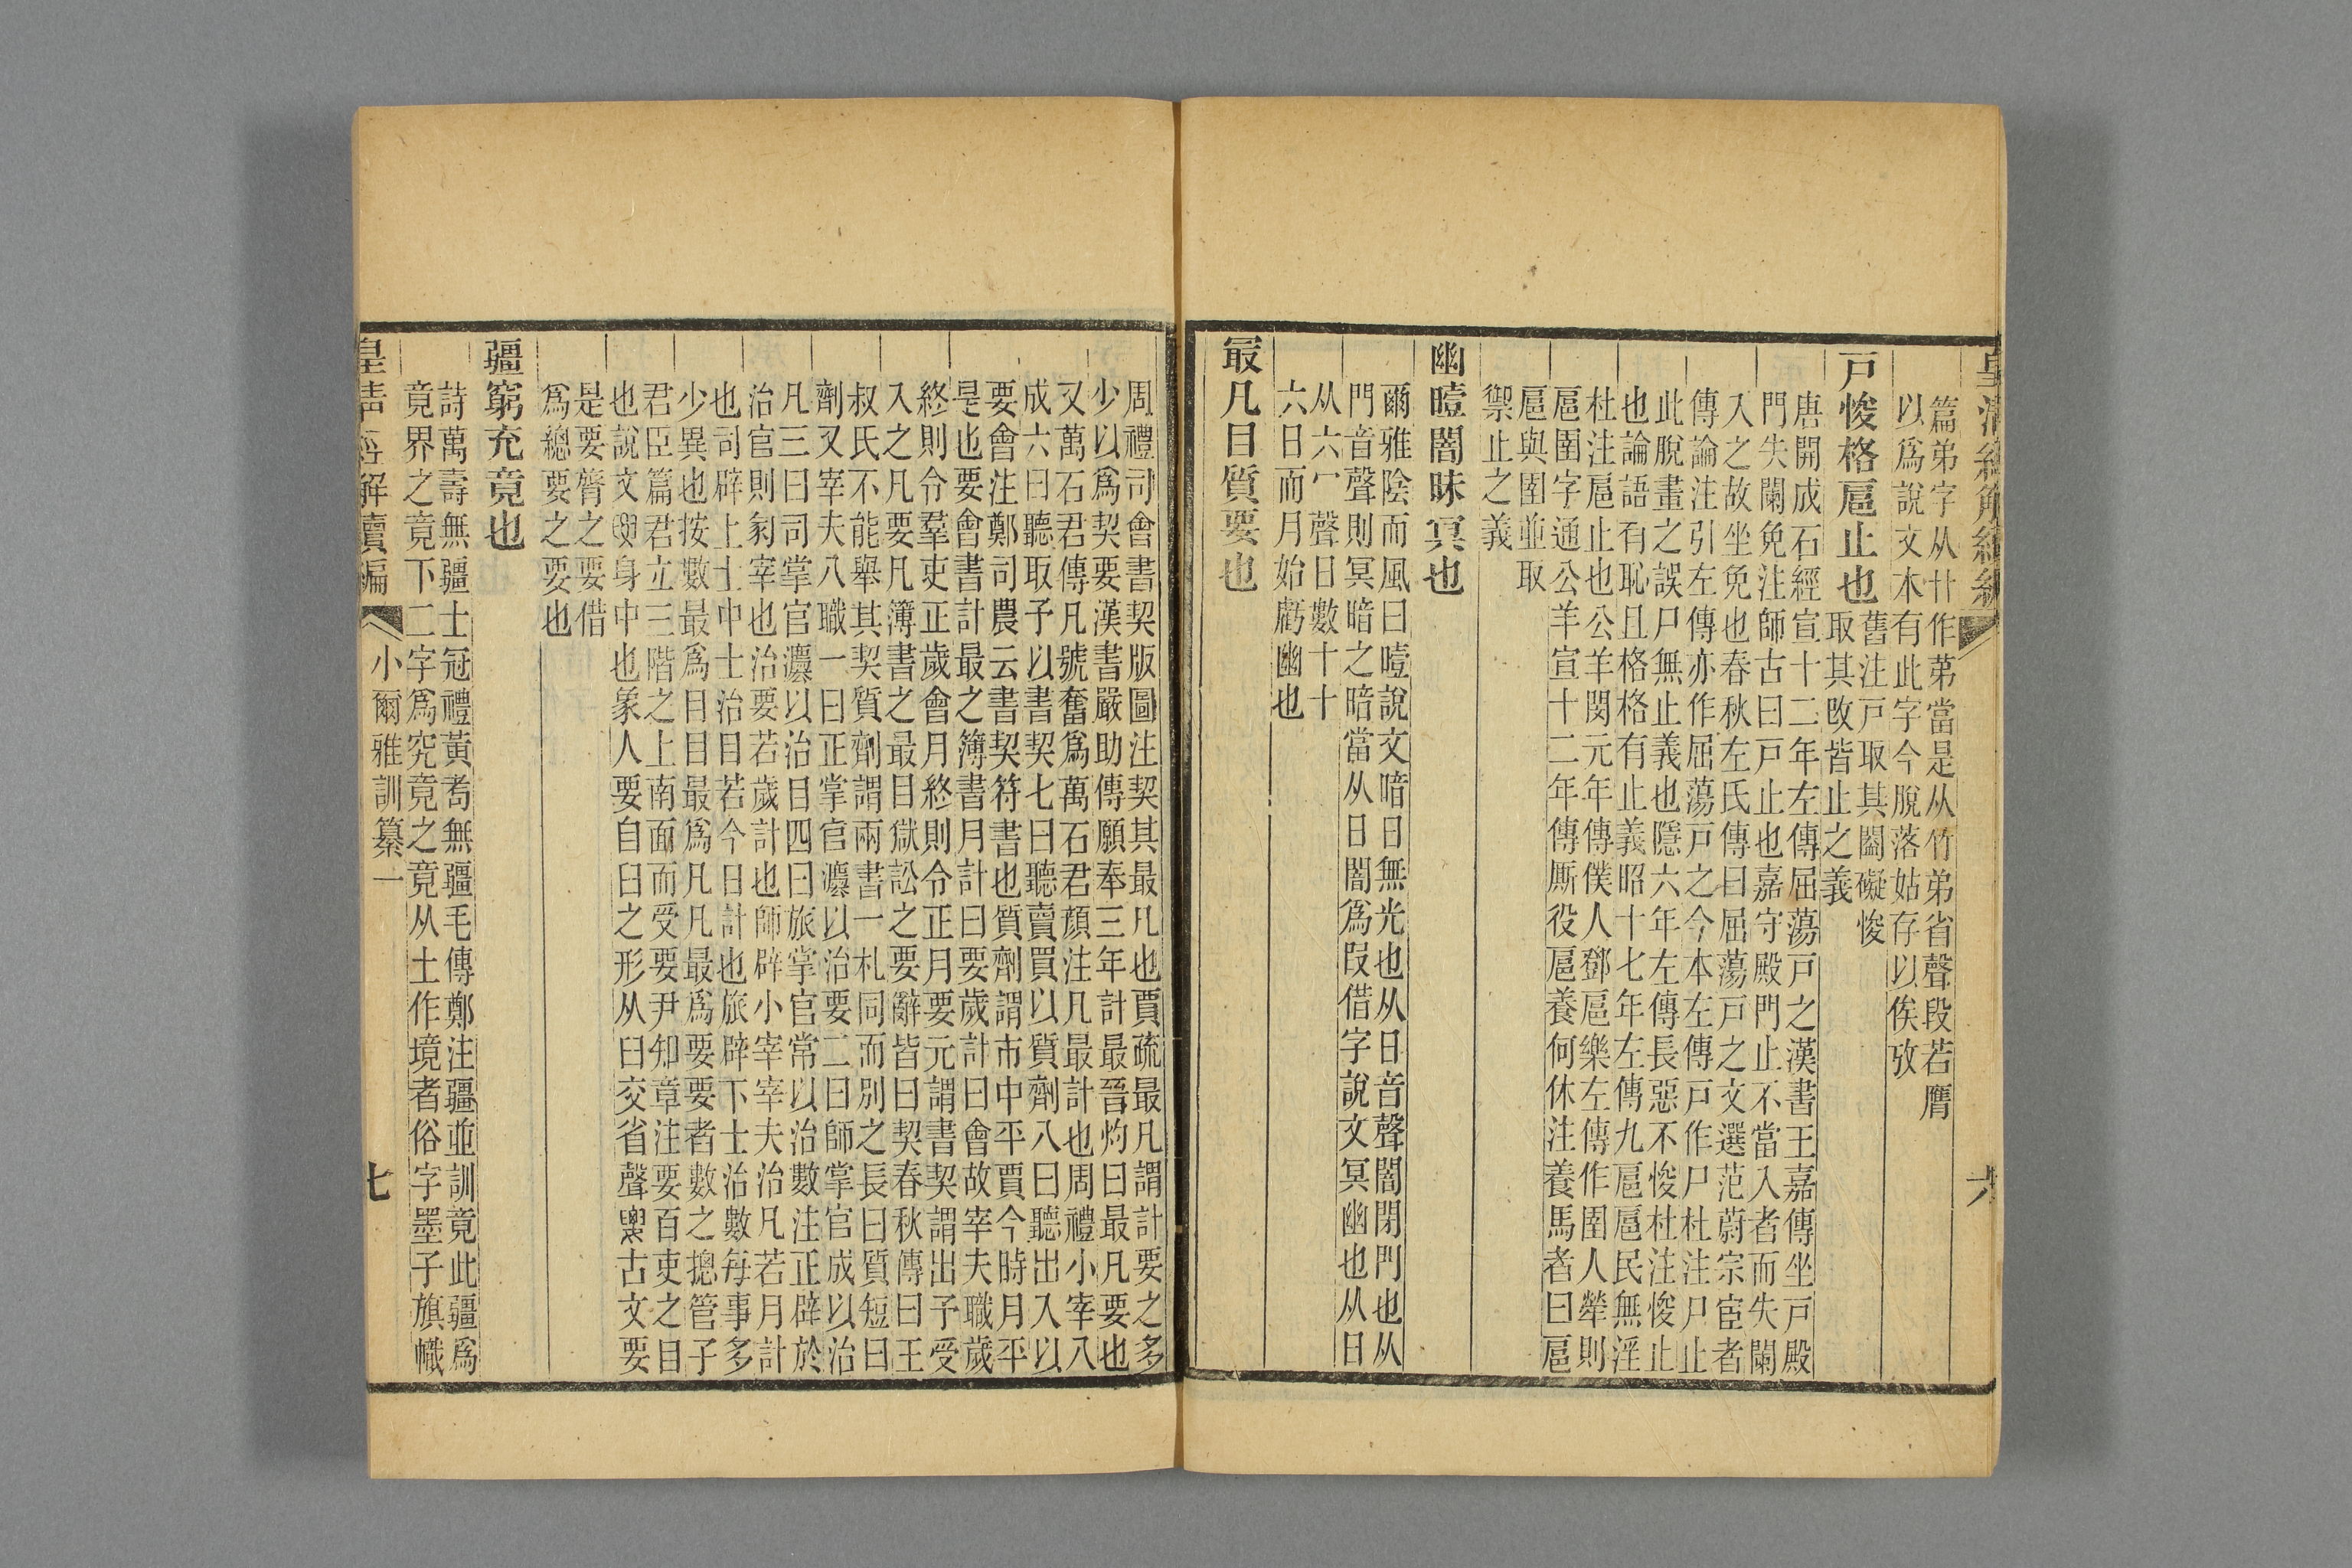 皇清經解續編
六
篇弟字从廿作苐當是从竹弟省聲段若膺
以爲說文本有此字今脫落姑存以俟攷
戸悛格扈止也
舊注戸取其闔礙悛
取其改皆止之義
唐開成石經宣十二年左傳屈蕩戸之漢書王嘉傳坐戸殿
門失闌免注師古曰戸止也嘉守殿門止不當入者而失闌
入之故坐免也春秋左氏傳曰屈蕩戸之文選范蔚宗宦者
傳論注引左傳亦作屈蕩戸之今本左傳戸作尸杜注尸止
此脫畫之誤尸無止義也隱六年左傳長惡不悛杜注悛止
也論語有恥且格格有止義昭十七年左傳九扈扈民無淫
杜注扈止也公羊閔元年傳僕人鄧扈樂左傳作圉人犖則
扈圉字通公羊宣十二年傳厮役扈養何休注養馬者曰扈
扈與圉並取
禦止之義
幽曀闇昧冥也
爾雅陰而風曰曀說文暗日無光也从日音聲闇閉門也从
門音聲則冥暗之暗當从日闇爲叚借字說文冥幽也从日
从六冖聲日數十十
六日而月始虧幽也
最凡目質要也
周禮司會書契版圖注契其最凡也賈疏最凡謂計要之多
少以爲契要漢書嚴助傳願奉三年計最晉灼曰最凡要也
又萬石君傳凡號奮爲萬石君顏注凡最計也周禮小宰八
成六曰聽取予以書契七曰聽賣買以質劑八曰聽出入以
要會注鄭司農云書契符書也質劑謂市中平賈今時月平
是也要會書計最之簿書月計曰要歲計曰會故宰夫職歲
終則令羣吏正歲會月終則令正月要元謂書契謂出予受
入之凡要凡簿書之最目獄訟之要辭皆曰契春秋傳曰王
叔氏不能舉其契質劑謂兩書一札同而別之長曰質短曰
劑又宰夫八職一曰正掌官灋以治要二曰師掌官成以治
凡三曰司掌官灋以治目四曰旅掌官常以治數注正辟於
治官則冢宰也治要若歲計也師辟小宰宰夫治凡若月計
也司辟上士中士治目若今日計也旅辟下士治數每事多
少異也按數最爲目目最爲凡凡最爲要要者數之摠管子
君臣篇君立三階之上南面而受要尹知章注要百吏之目
也說文身中也象人要自臼之形从臼交省聲古文要
是要膂之要借
爲總要之要也
疆窮充竟也
詩萬壽無疆士冠禮黃耇無疆毛傳鄭注疆並訓竟此疆爲
竟界之竟下二字爲究竟之竟从土作境者俗字墨子旗幟
皇清經解續編
小爾雅訓纂一
七